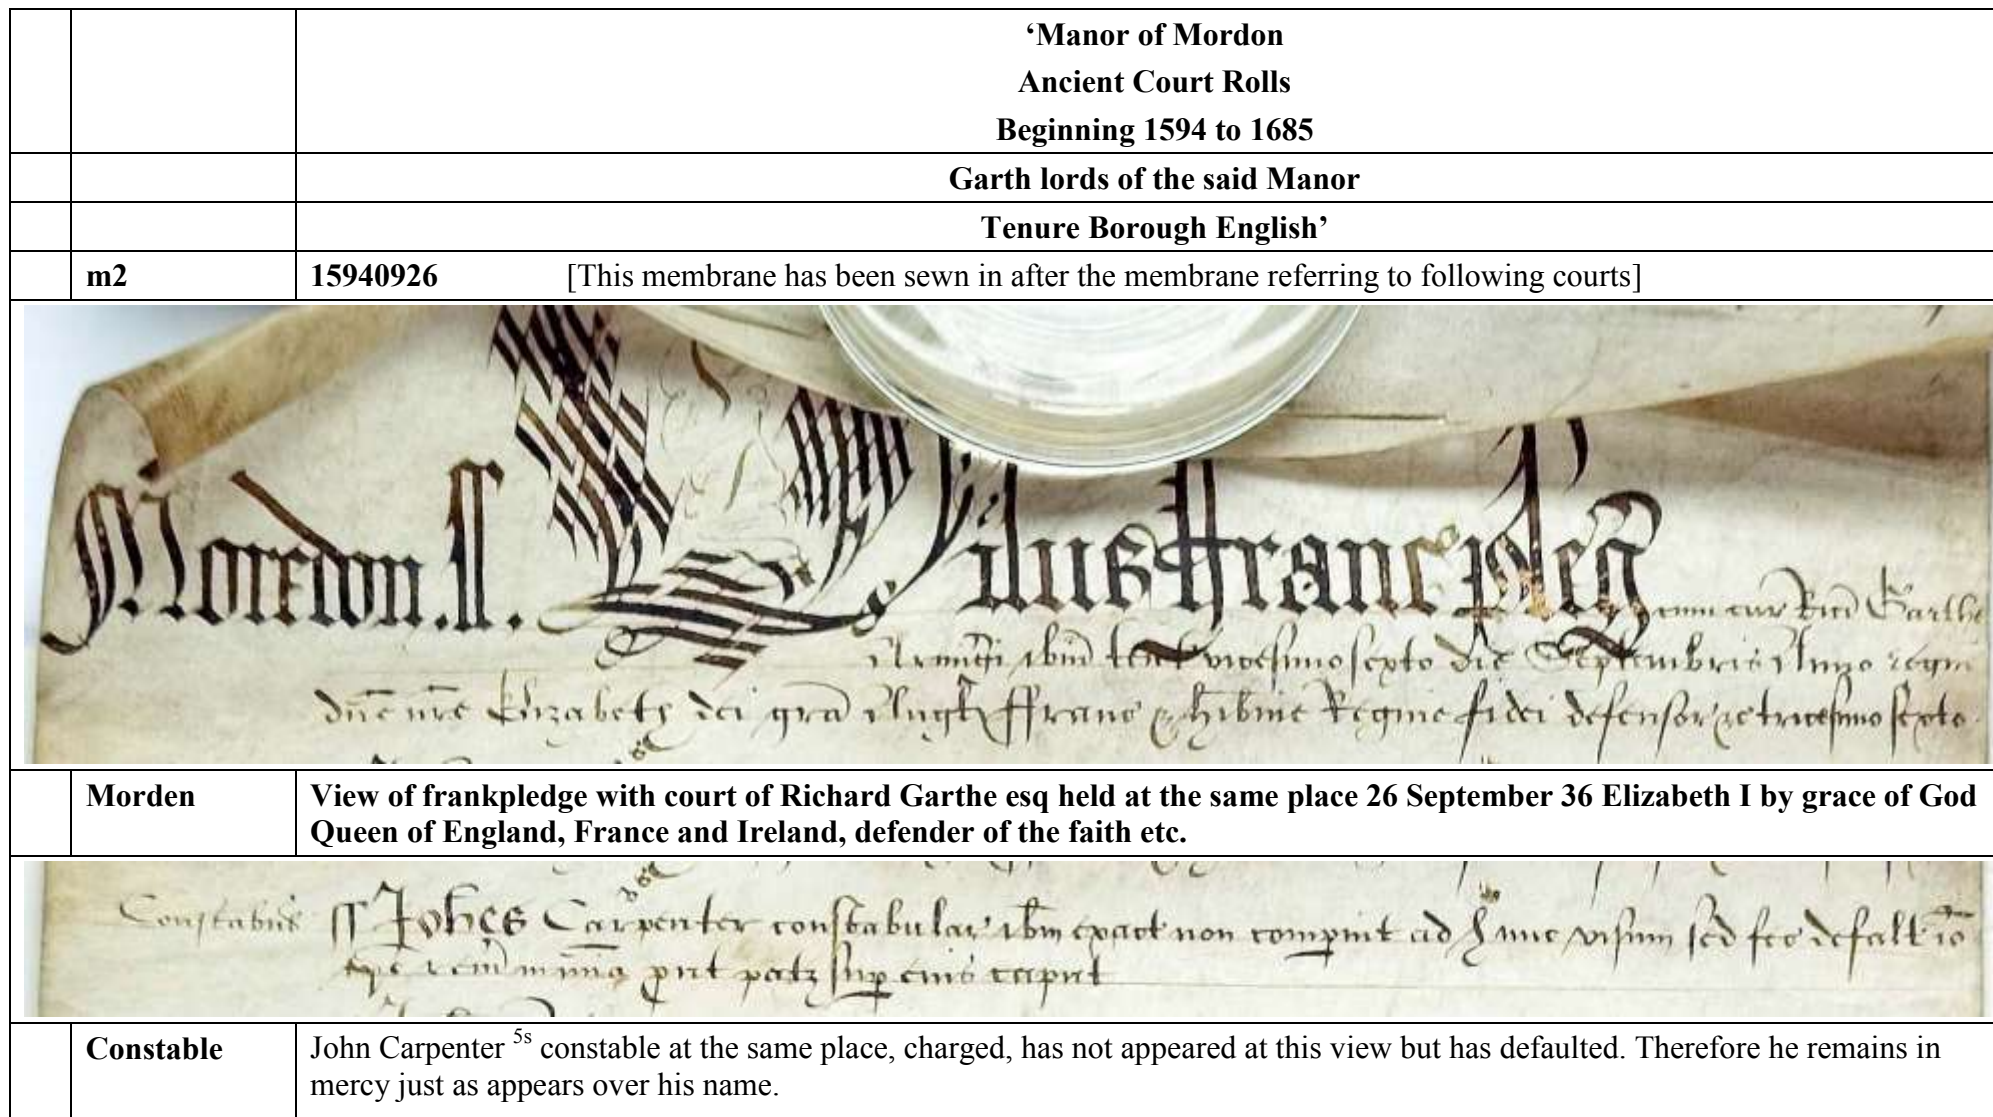 ‘Manor of Mordon
Ancient Court Rolls
Beginning 1594 to 1685
Garth lords of the said Manor
Tenure Borough English’
m2 15940926 [This membrane has been sewn in after the membrane referring to following courts]
Moredon ss. Visus ffranc pleg cum cur Rici Garthe
Armigi ibm tent vicesimo sexto die Septembris Anno regni
dne nre Elizabeth dei gra Angl ffranc & hibnie Regine fidei defensor &c tricesimo sexto
Morden View of frankpledge with court of Richard Garthe esq held at the same place 26 September 36 Elizabeth I by grace of God
Queen of England, France and Ireland, defender of the faith etc.
ss Johes Carpenter constabular ibm exact non compuit ad hunc visum sed fec defalt io
in mia put patz sup eius caput
Constable John Carpenter 5s constable at the same place, charged, has not appeared at this view but has defaulted. Therefore he remains in
mercy just as appears over his name.